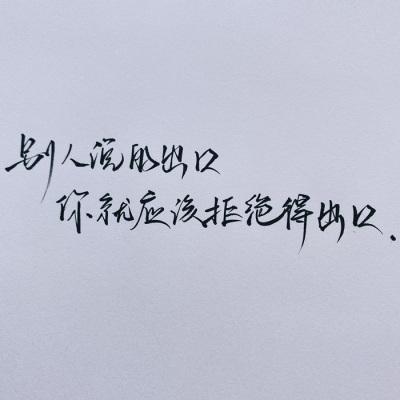 别人说的出口
你就应该拒绝得出口.